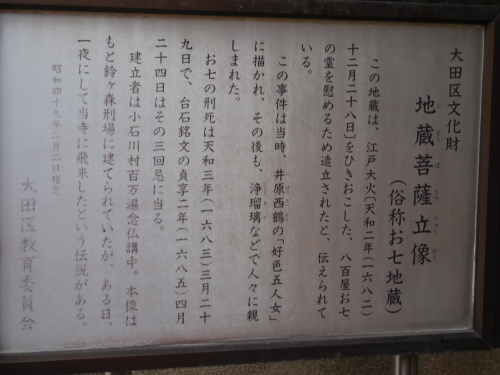 大田区文化財
地蔵菩薩立像
じぞうぼさつりつぞう
(俗称お七地蔵)
この地蔵は、江戸大火〔天和二年(一六八二)
十二月二十八日〕をひきおこした、八百屋お七
の霊を慰めるため造立されたと、伝えられて
いる。
この事件は当時、井原西鶴の「好色五人女」
に描かれ、その後も、浄瑠璃などで人々に親
しまれた。
お七の刑死は天和三年(一六八三)三月二十
九日で、台石銘文の貞享二年(一六八五)四月
二十四日はその三回忌に当る。
建立者は小石川村百万遍念仏講中。本像は
もと鈴ヶ森刑場に建てられていたが、ある日、
一夜にして当寺に飛来したという伝説がある。
昭和四十九年二月二日指定
大田区教育委員会